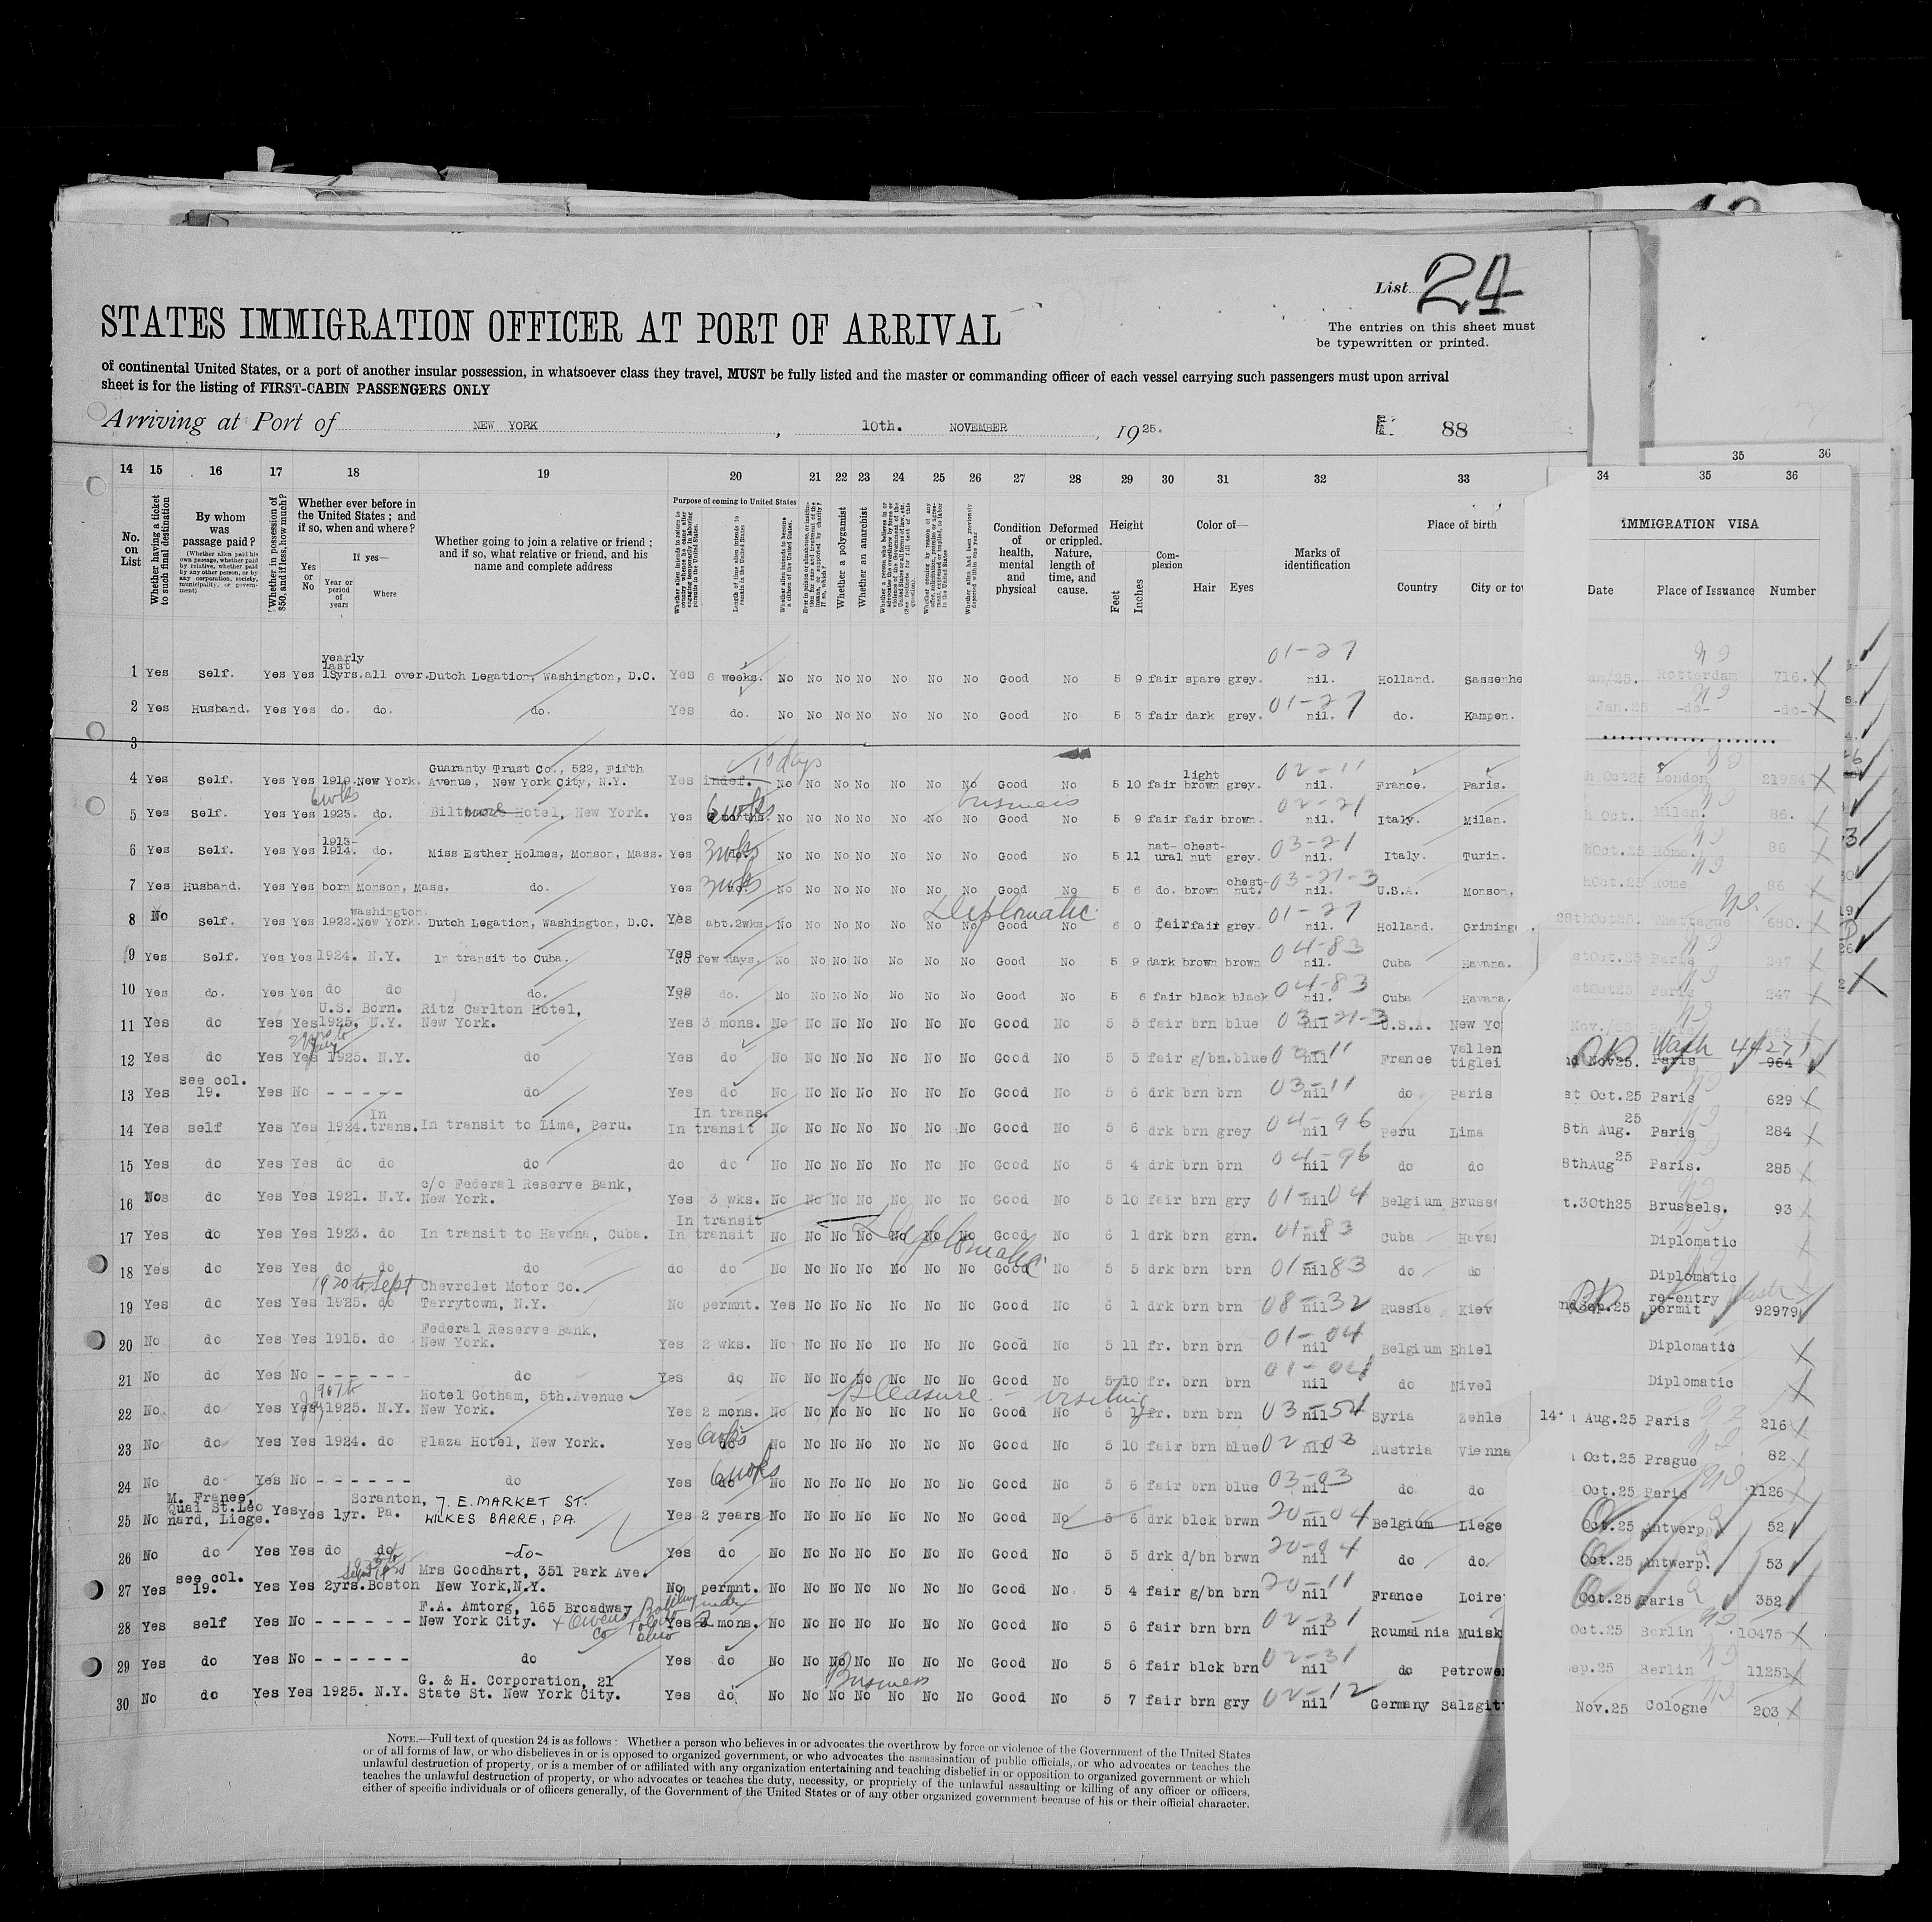 List 24
STATES IMMIGRATION OFFICER AT PORT OF ARRIVAL
The entries on this sheet must
be typewritten or printed.
of continental United States, or a port of another insular possession, in whatsoever class they travel, MUST be fully listed and the master or commanding officer of each vessel carrying such passengers must upon arrival
sheet is for the listing of FIRST-CABIN PASSENGERS ONLY
Arriving at Port of NEW YORK , 10th. NOVEMBER , 1925. E. 88
14 15 16 17 18 19 20 21 22 23 24 25 26 27 28 29 30 31 32 33 34 35 36
No. on List
Whether having a ticket to such final destination
By whom was passage paid?
(Whether alien paid his own passage, whether paid by relative, whether paid by any other person, or by any corporation, society, municipality, or government)
Whether in possession of $50, and if less, how much?
Whether ever before in the United States; and if so, when and where?
Yes or No
If yes—
Year or period of years
Where
Whether going to join a relative or friend; and if so, what relative or friend, and his name and complete address
Purpose of coming to United States
Length of time alien intends to remain in the United States
Whether alien intends to become a citizen of the United States.
Whether a polygamist
Whether an anarchist
Condition of health, mental and physical
Deformed or crippled. Nature, length of time, and cause.
Height
Feet
Inches
Complexion
Color of—
Hair Eyes
Marks of identification
Place of birth
Country City or tow
IMMIGRATION VISA
Date Place of Issuance Number
1 Yes Self. Yes Yes yearly last 18yrs. all over. Dutch Legation, Washington, D.C. Yes 6 weeks. No No No No No No No Good No 5 9 fair spare grey. 01-27 nil. Holland. Sassenhe an/25. Rotterdam 716.
2 Yes Husband. Yes Yes do. do. do. Yes do. No No No No No No No Good No 5 3 fair dark grey. 01-27 nil. do. Kampen. Jan.25 -do- -do-
3
4 Yes Self. Yes Yes 1919. New York. Guaranty Trust Co., 522, Fifth Avenue, New York City, N.Y. Yes indef. 10 days No No No No No No No Good No 5 10 fair light brown grey. 02-11 nil. France. Paris. h Oct25 London 21954
5 Yes Self. Yes Yes 1923. do. Biltmore Hotel, New York. Yes 6 wks No No No No No No No business Good No 5 9 fair fair brown. 02-21 nil. Italy. Milan. h Oct. Milan. 86.
6 Yes Self. Yes Yes 1913-1914. do. Miss Esther Holmes, Monson, Mass. Yes 3 wks No No No No No No No Good No 5 11 nat-ural chest-nut grey. 03-21 nil. Italy. Turin. hOct.25 Rome. 86
7 Yes Husband. Yes Yes born Monson, Mass. do. Yes 3 wks No No No No No No No Good No 5 6 do. brown chest-nut. 03-21-3 nil. U.S.A. Monson. hOct.25 Rome. 86
8 No Self. Yes Yes 1922. Washington. New York. Dutch Legation, Washington, D.C. Yes abt.2wks. No No No No No No No Diplomatic Good No 6 0 fair fair grey. 01-27 nil. Holland. Griming 28thOct25. 680.
9 Yes Self. Yes Yes 1924. N.Y. In transit to Cuba. Yes No few days. No No No No No No No Good No 5 9 dark brown brown 04-83 nil. Cuba Havana. stOct.25 Paris 247
10 Yes do. Yes Yes do do do. Yes No do. No No No No No No No Good No 5 6 fair black black 04-83 nil. Cuba Havana. stOct25 Paris 247
11 Yes do Yes Yes U.S. Born. 1925. N.Y. Ritz Carlton Hotel, New York. Yes 3 mons. No No No No No No No Good No 5 5 fair brn blue 03-21-3 nil U.S.A. New Yo Nov./25
12 Yes do Yes Yes 1925. N.Y. do Yes do No No No No No No No Good No 5 5 fair g/bn. blue 03-11 nil France Vallen tiglei nd Nov25. OK Wash 44271 Paris 964
13 Yes see col. 19. Yes No - - - - - do Yes do No No No No No No No Good No 5 6 drk brn brn 03-11 nil do Paris st Oct.25 Paris 629
14 Yes self Yes Yes 1924. In trans. In transit to Lima, Peru. In transit In trans. No No No No No No No Good No 5 6 drk brn grey 04-96 nil Peru Lima 8th Aug. 25 Paris 284
15 Yes do Yes Yes do do do do do No No No No No No No Good No 5 4 drk brn brn 04-96 nil do do 8thAug 25 Paris. 285
16 No do Yes Yes 1921. N.Y. c/o Federal Reserve Bank, New York. Yes 3 wks. No No No No No No No Good No 5 10 fair brn gry 01-04 nil Belgium Brusse t.30th25 Brussels. 93
17 Yes do Yes Yes 1923. do In transit to Havana, Cuba. In transit In transit No No No No No No No Diplomatic Good No 6 1 drk brn grn. 01-83 nil Cuba Hava Diplomatic
18 Yes do Yes Yes do do do do do No No No No No No No Good No 5 5 drk brn brn 01-83 nil do do Diplomatic
19 Yes do Yes Yes 1920 to Sept 1925. do Chevrolet Motor Co. Tarrytown, N.Y. No permnt. Yes No No No No No No Good No 6 1 drk brn brn 08-32 nil Russia Kiev nd Sep.25 re-entry permit Wash 92979
20 No do Yes Yes 1915. do Federal Reserve Bank, New York. Yes 2 wks. No No No No No No No Good No 5 11 fr. brn brn 01-04 nil Belgium Ehiel Diplomatic
21 No do Yes No - - - - - - do Yes do No No No No No No No Good No 5 10 fr. brn brn 01-04 nil do Nivel Diplomatic
22 No do Yes Yes 1907 to July 1925. N.Y. Hotel Gotham, 5th. Avenue New York. Yes 2 mons. No No No No No No No pleasure - visiting Good No 6 1 fr. brn brn 03-54 nil Syria Zehle 14th Aug.25 Paris 216
23 No do Yes Yes 1924. do Plaza Hotel, New York. Yes 6 wks do No No No No No No No Good No 5 10 fair brn blue 02-03 nil Austria Vienna Oct.25 Prague 82
24 No do Yes No - - - - - - do Yes 6 wks do No No No No No No No Good No 5 6 fair brn blue 03-03 nil do do Oct.25 Paris 1126
25 No M. France, Quai St.Leo nard, Liege. Yes Yes 1yr. Scranton, Pa. 7. E. MARKET ST. WILKES BARRE, PA. Yes 2 years No No No No No No No Good No 5 6 drk blck brwn 20-04 nil Belgium Liege Oct.25 Antwerp 52
26 No do Yes Yes do do -do- Yes do No No No No No No No Good No 5 5 drk d/bn brwn 20-04 nil do do. Oct.25 Antwerp. 53
27 Yes see col. 19. Yes Yes 2yrs. Boston Mrs Goodhart, 351 Park Ave. New York,N.Y. No permnt. No No No No No No No Good No 5 4 fair g/bn brn 20-11 nil France Loire Oct.25 Paris 352
28 Yes self Yes No - - - - - - F.A. Amtorg, 165 Broadway New York City. + Owens Bottling Co Toledo Ohio Yes 2 mons. No No No No No No No Good No 5 6 fair brn brn 02-31 nil Roumainia Muisk Oct.25 Berlin 10475
29 Yes do Yes No - - - - - - do Yes do No No No No No No No Good No 5 6 fair blck brn 02-31 nil do Petrowe ep.25 Berlin 11251
30 No do Yes Yes 1925. N.Y. G. & H. Corporation, 21 State St. New York City. Yes do No No No No No No No Business Good No 5 7 fair brn gry 02-12 nil Germany Salzgit Nov.25 Cologne 203
NOTE.—Full text of question 24 is as follows: Whether a person who believes in or advocates the overthrow by force or violence of the Government of the United States
or of all forms of law, or who disbelieves in or is opposed to organized government, or who advocates the assassination of public officials, or who advocates or teaches the
unlawful destruction of property, or is a member of or affiliated with any organization entertaining and teaching disbelief in or opposition to organized government or which
teaches the unlawful destruction of property, or who advocates or teaches the duty, necessity, or propriety of the unlawful assaulting or killing of any officer or officers,
either of specific individuals or of officers generally, of the Government of the United States or of any other organized government because of his or their official character.